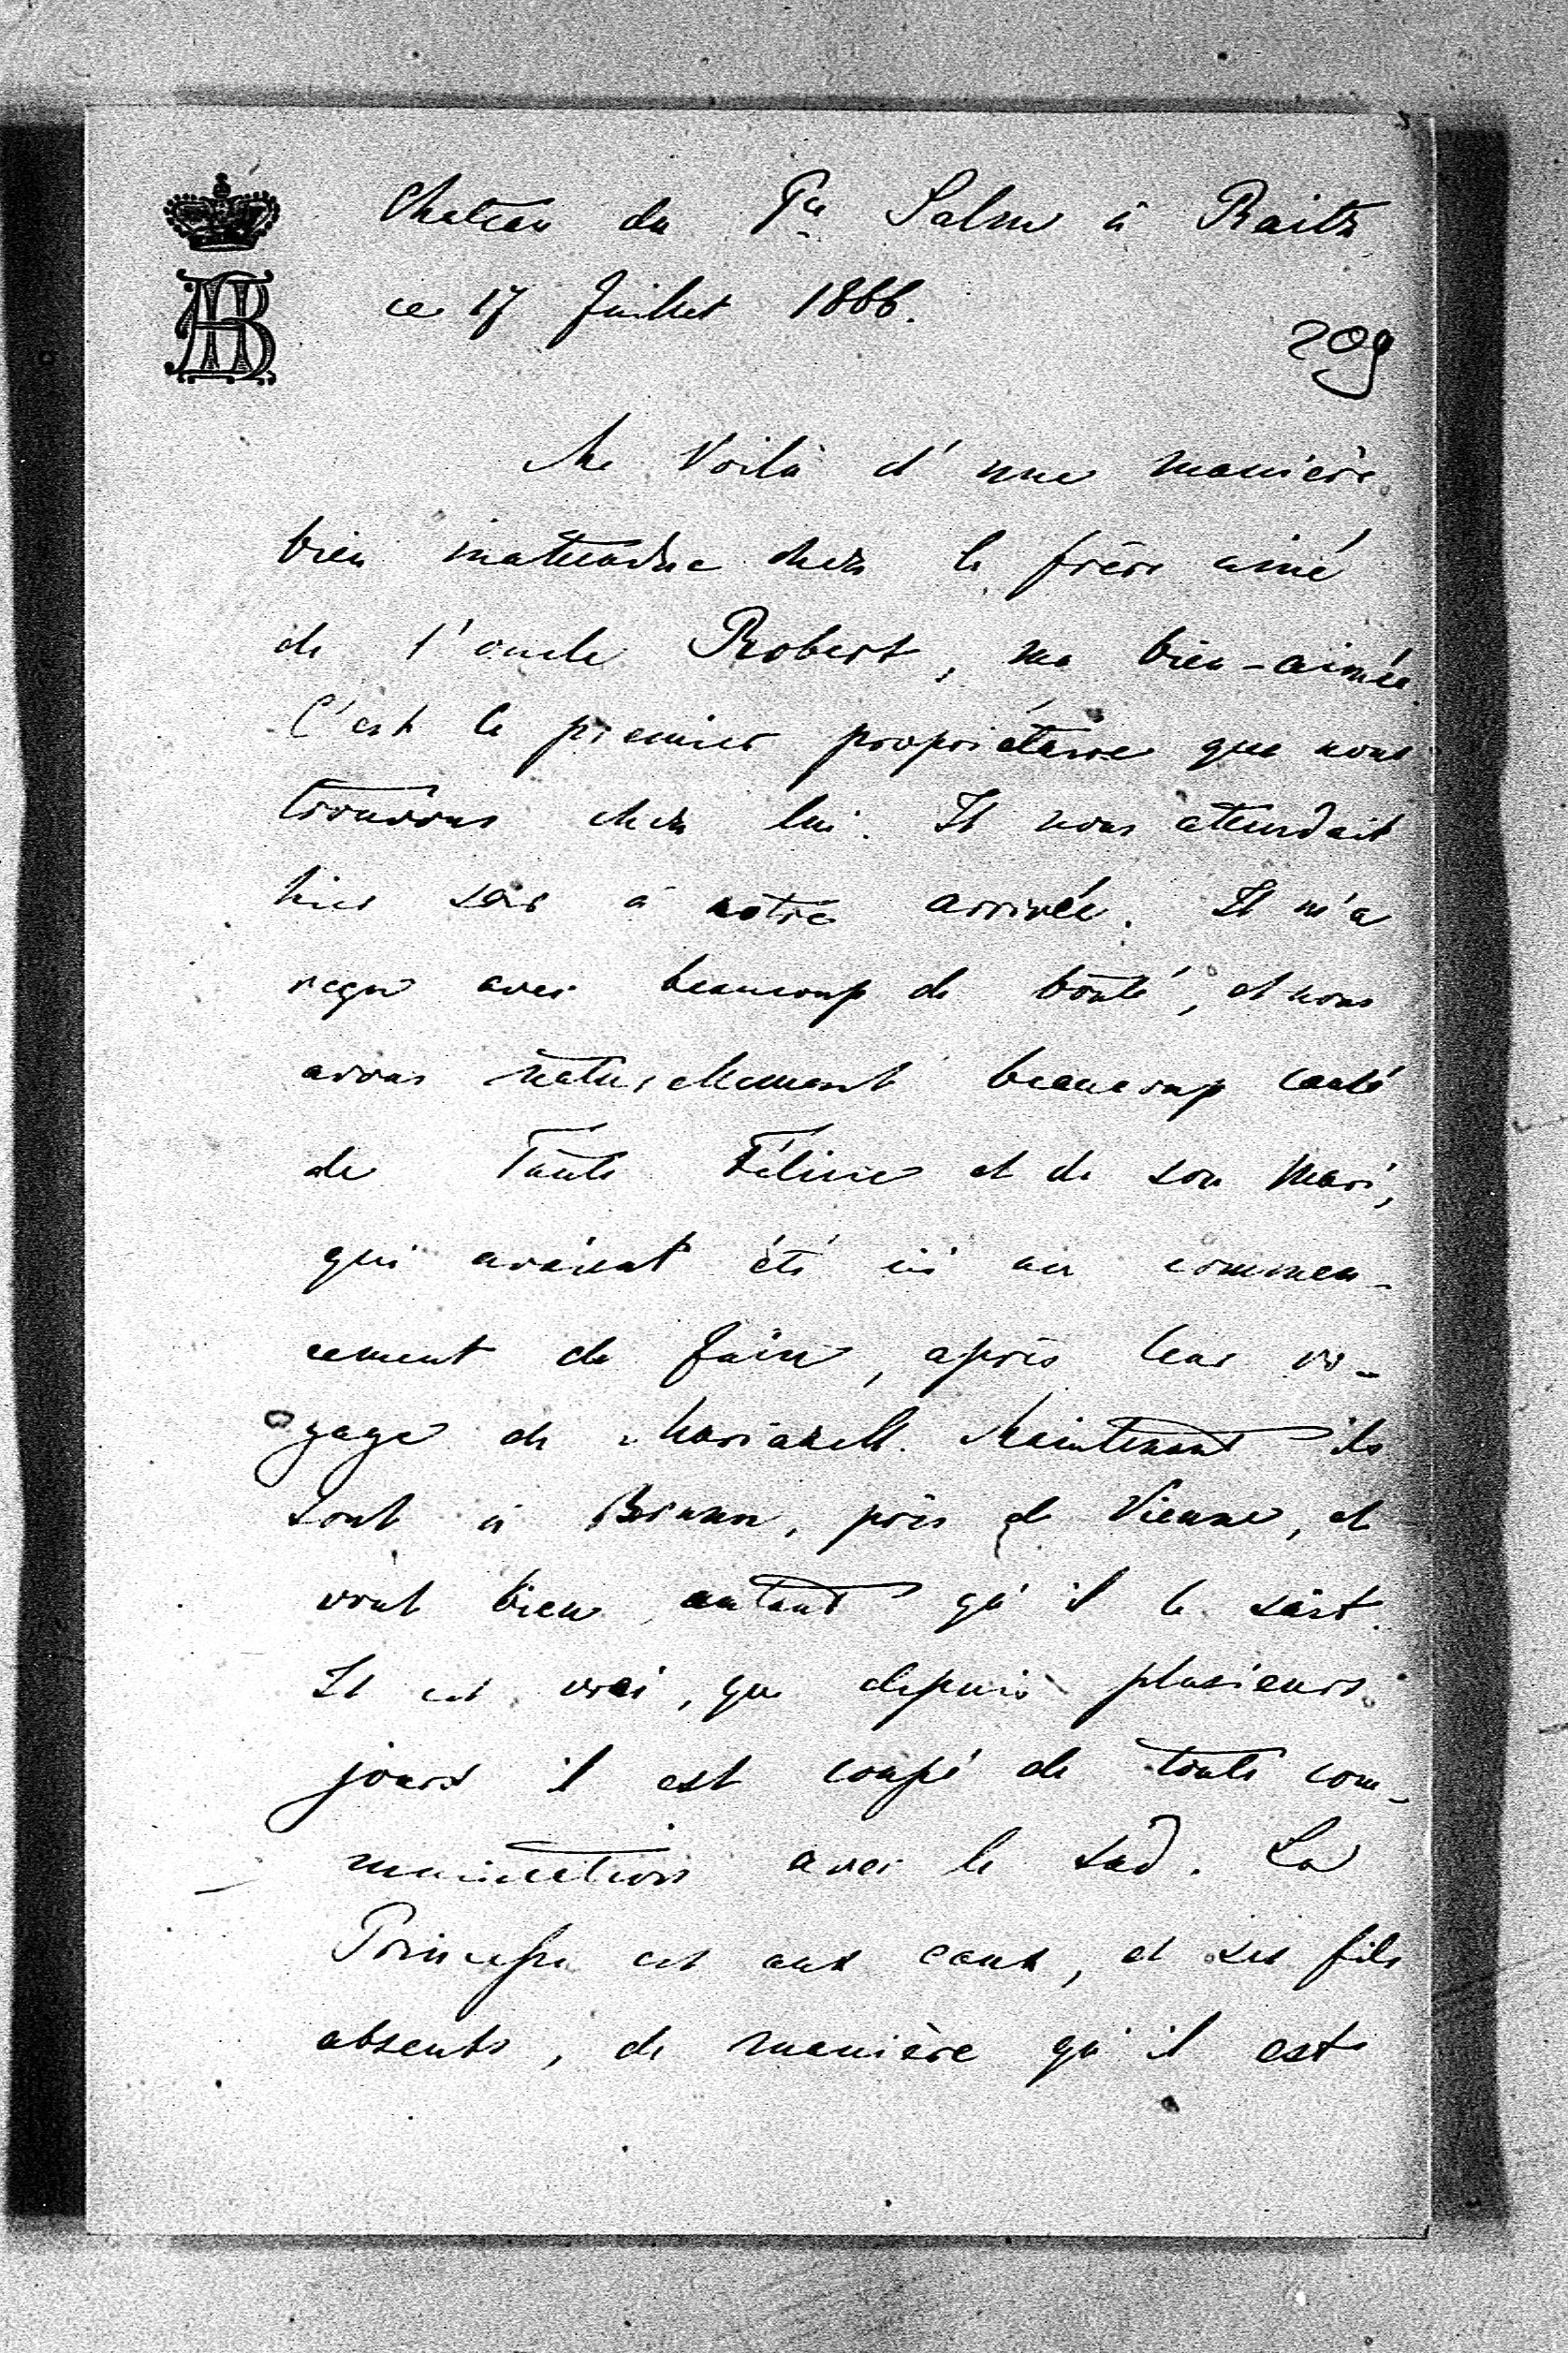 Chateau du Pce Salm à Raitz
ce 17 Juillet 1866.
209
Me voilà d'une manière
bien inattendue chez le frère ainé
de l'oncle Robert, ma bien-aimée
C'est le premier propriétaire que nous
trouvons chez lui. Il nous attendait
hier soir à notre arrivée. Il m'a
reçu avec beaucoup de bonté, et nous
avons naturellement beaucoup causé
de Tante Féline et de son mari,
qui avaient été ici au commen-
cement de Juin, après leur vo-
yage de Mariazell. Maintenant ils
sont à Brunn, près de Vienne, et
vont bien autant qu'il le sait.
Il est vrai, que depuis plusieurs
jours il est coupé de toute com-
munication avec le sud. La
Princesse est aux eaux, et ses fils
absents, de manière qu'il est